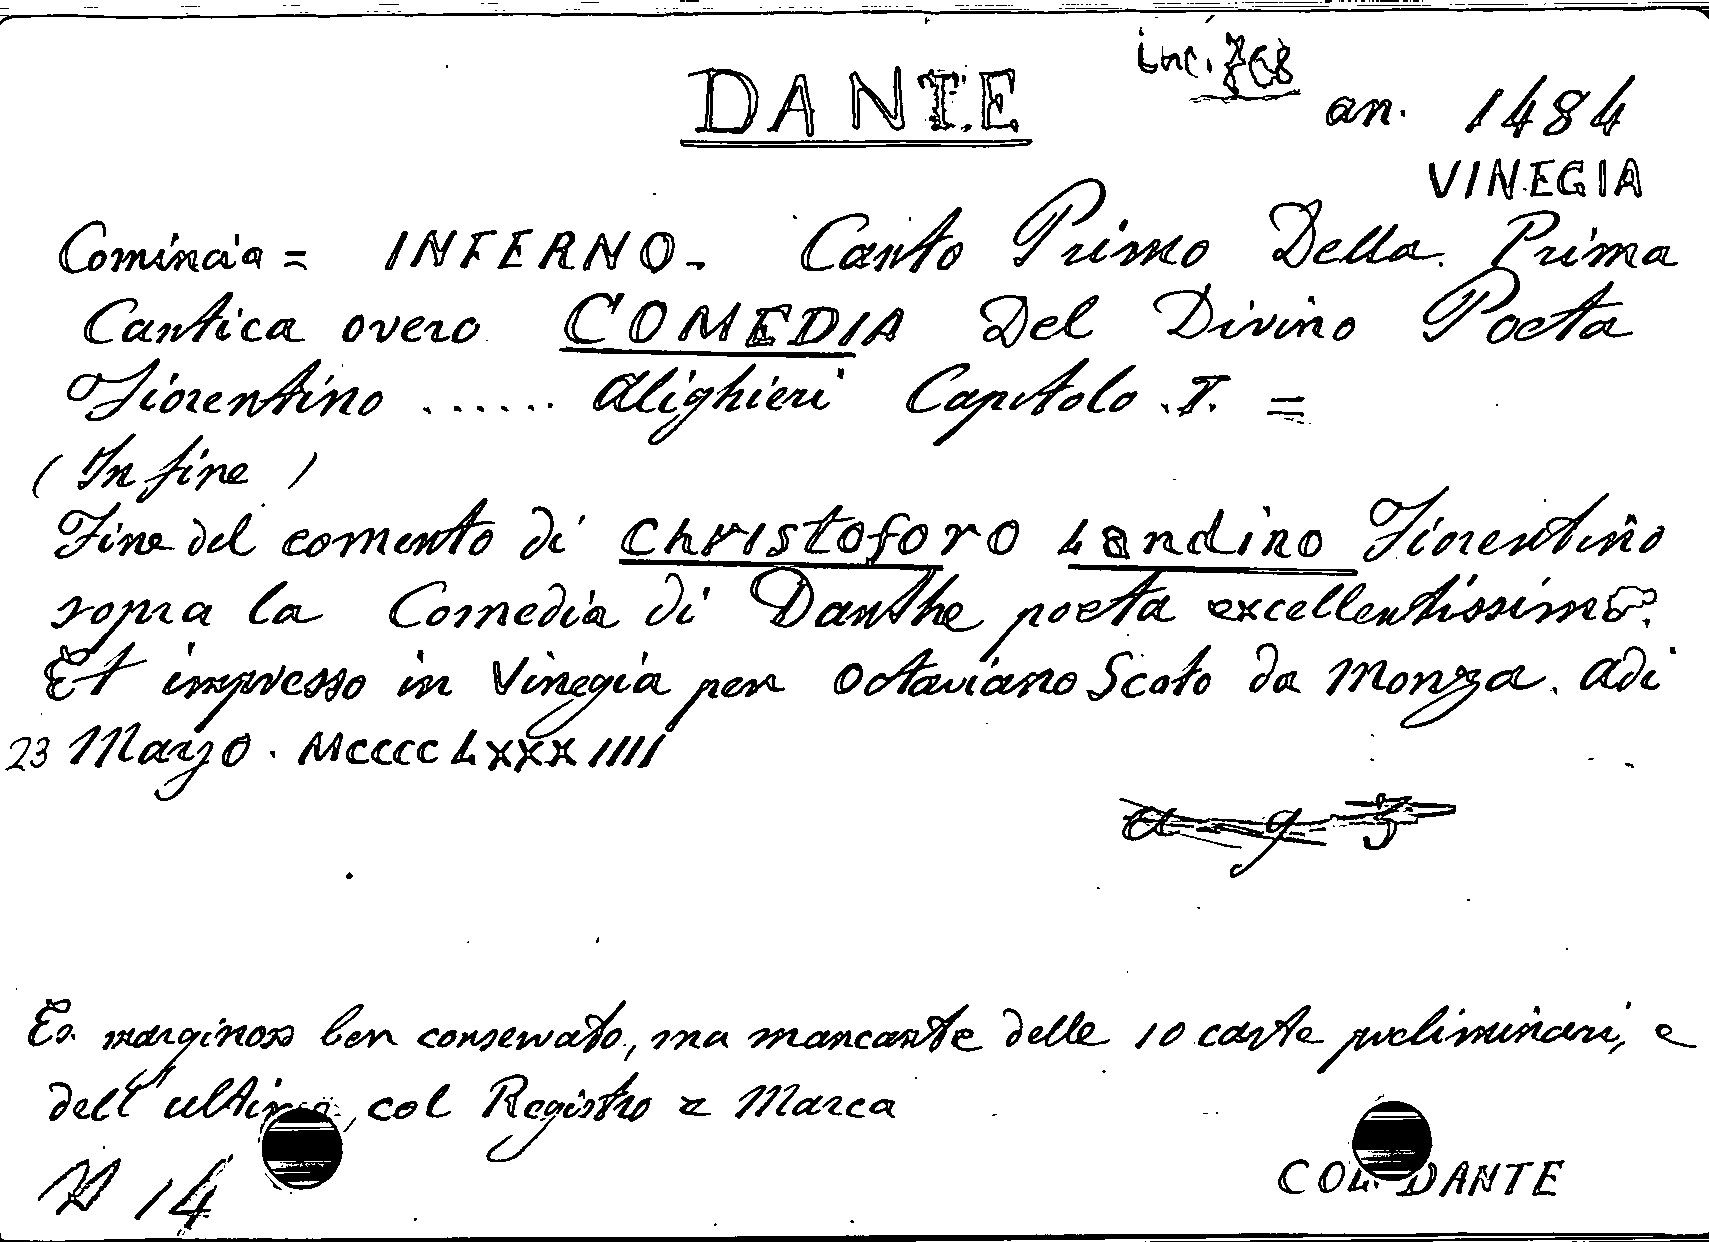 DANTE
inc. 768
an. 1484
VINEGIA
Comincia = INFERNO - Canto Primo Della Prima
Cantica overo COMEDIA Del Divino Poeta
Fiorentino ...... Alighieri Capitolo .I. =
(In fine)
Fine del comento di Christoforo Landino Fiorentino
sopra la Comedia di Danthe poeta excellentissimo.
Et impresso in Vinegia per Octaviano Scoto da Monza. Adi
23 Marzo. MCCCCLXXXIIII
Es. marginoso ben conservato, ma mancante delle 10 carte preliminari, e
dell'ultima, col Registro e Marca
14
COL. DANTE